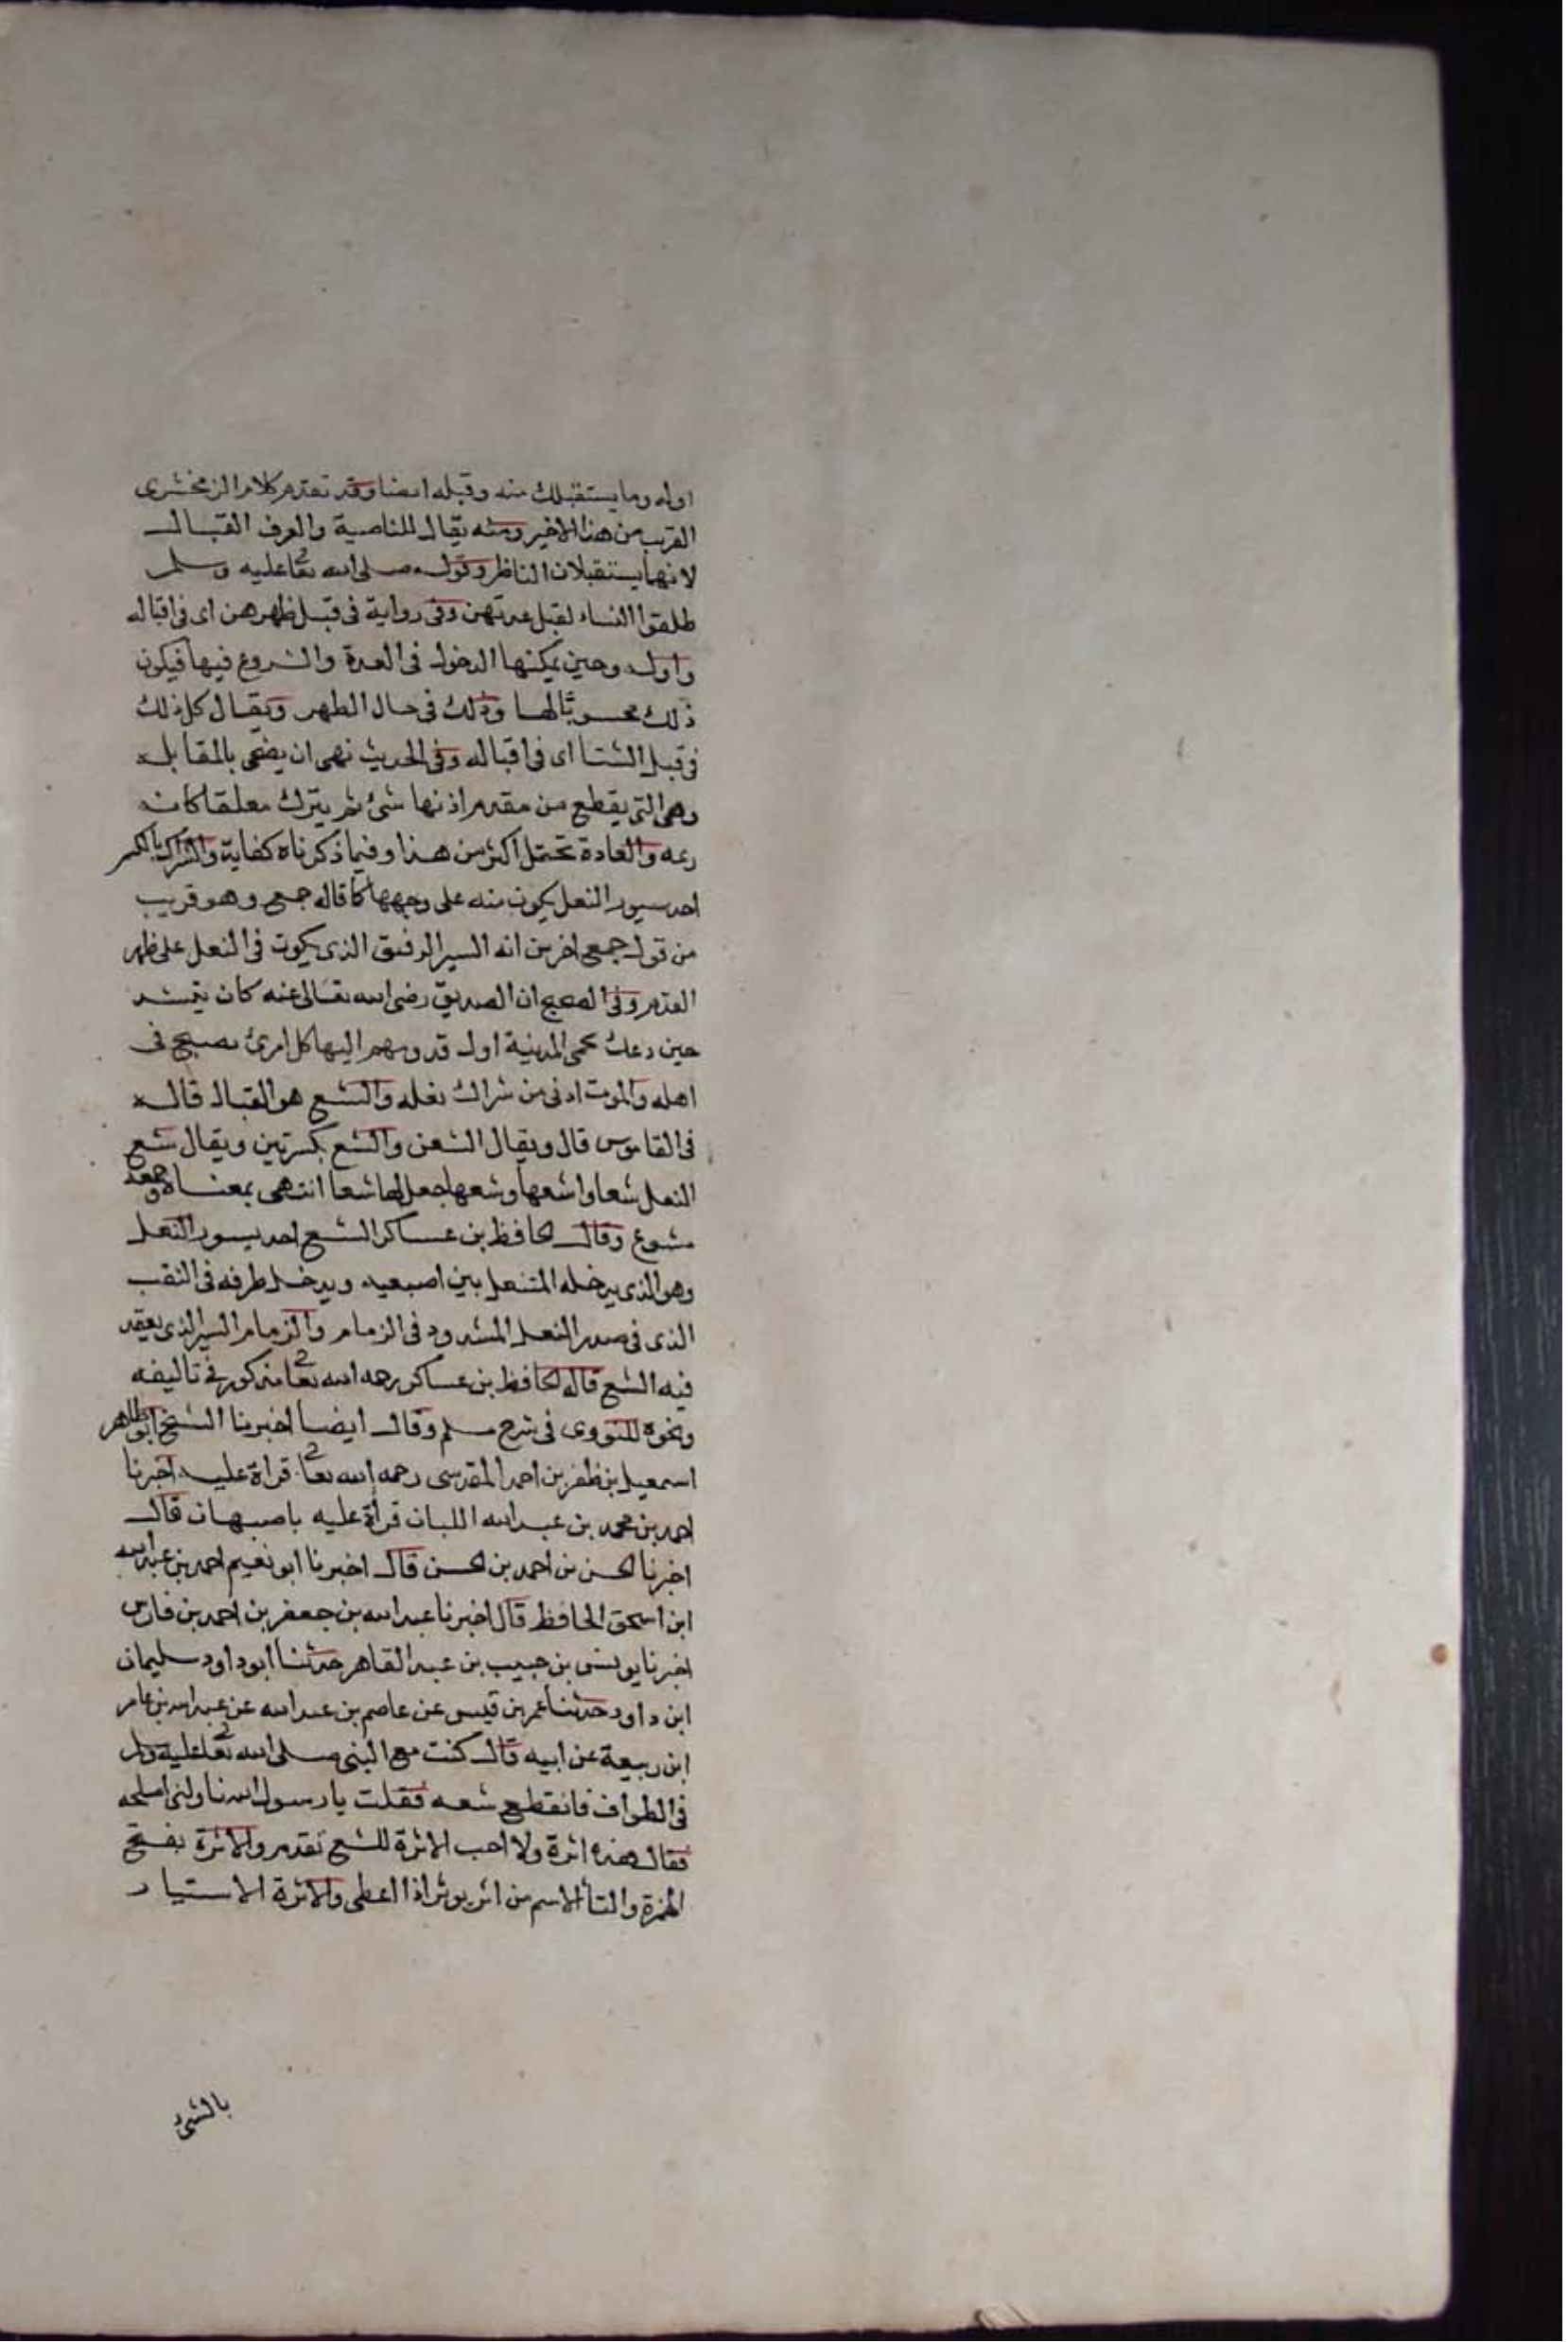 اوله وما يستقبلك منه وقبله ايضا وقد تقدم كلام الزمخشرى
القريب من هذا الاخير ومنه يقال للناصية والعرف القبال
لانهما يستقبلان الناظر وقوله صلى الله تعا عليه وسلم
طلقوا النساء لقبل عدتهن وفى رواية فى قبل ظهرهن اى فى اقباله
واوله وحين يمكنها الدخول فى العدة والشروع فيها فيكون
ذلك محسوبًا لها وذلك فى حال الطهر ويقال كل ذلك
فى قبل الشتا اى فى اقباله وفى الحديث نهى ان يضحى بالمقابله
وهى التى يقطع من مقدم اذنها شئ ثم يترك معلقا كانه
زنمه والعادة تحتمل اكثر من هذا وفيما ذكرناه كفاية والشراك بالكسر
احد سيور النعل يكون منه على وجهها كما قاله جمع وهو قريب
من قول جمع اخرين انه السير الرقيق الذى يكون فى النعل على ظهر
القدم وفى الصحيح ان الصديق رضى الله تعالى عنه كان يتمثد
حين دعك بحمى المدينة اول قدومهم اليها كل امرئ مصبح فى
اهله والموت ادنى من شراك نعله والشسع هو القبال قاله
فى القاموس قال ويقال الشسعن والشسع بكسرتين ويقال شسع
النعل شسعا واشسعها وشسعها جعل لها شسعا انتهى بمعناه وجمعه
شسوع وقال الحافظ بن عساكر الشسع احد سيور النعل
وهو الذى يدخله المتنعل بين اصبعيه ويدخل طرفه فى النقب
الذى فى صدر النعل المشدود فى الزمام والزمام السير الذى يعقد
فيه الشسع قاله الحافظ بن عساكر رحمه الله تعا مذكور فى تاليفه
ونحوه للنووى فى شرح مسلم وقال ايضا اخبرنا الشيخ ابو طاهر
اسمعيل بن ظفر بن احمد المقدسى رحمه الله تعا قراة عليه اخبرنا
احمد بن محمد بن عبد الله اللبان قرأة عليه باصبهان قال
اخبرنا الحسن بن احمد بن الحسن قال اخبرنا ابو نعيم احمد بن عبد الله
ابن اسحق الحافظ قال اخبرنا عبد الله بن جعفر بن احمد بن فارس
اخبرنا يونس بن حبيب بن عبد القاهر حدثنا ابو داود سليمان
ابن داود حدثنا عمر بن قيس عن عاصم بن عبد الله عن عبد الله بن عامر
ابن ربيعة عن ابيه قال كنت مع النبى صلى الله تعا عليه وسلم
فى الطواف فانقطع شسعه فقلت يا رسول الله ناولنى اصلحه
فقال هذه اثرة ولا احب الاثرة للشسع تقدم والاثرة بفتح
الهمزة والثا الاسم من اثر يوثر اذا اعطى والاثرة الاستيار
بالشئ